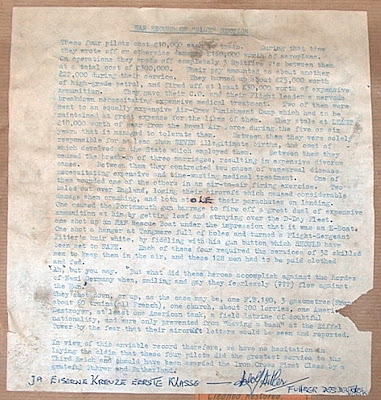 WAR RECORD OF "BLUE" SECTION
These four pilots cost £10,000 each to train. During that time
they wrote off or otherwise damaged worth of aeroplane.
On operations they pooped off completely 8 Spitfire I's between them
at a total cost of £300,000. Their pay amounted to about another
£22,000 during their service. They burned up about £75,000 worth
of high-grade petrol, and fired off at least £30,000 worth of expensive
ammunition. They gave their C.O. and their Flight Commander a nervous
breakdown necessitating expensive medical treatment. Two of them were
sent to an equally expensive Air-Crew Punishment Camp which had to be
maintained at great expense for the likes of them. They stole at LEAST
£10,000 worth of gear from the Royal Air Force during the five or six
years that it managed to tolerate them. Between them they were solely
responsible for no less than SEVEN illegitimate births, the cost of
which devolved on the State which employed them. Between them they
caused the break-up of three marriages, resulting in expensive divorce
cases. Between them they contracted two doses of venereal disease
necessitating expensive and time-wasting medical treatment. One of
them wounded one of the others in an air-to-air firing exercise. Two
baled out over England, losing their aircraft which caused considerable
damage when crashing, and both OLE their parachutes on landing.
One caused the Portsmouth gun barrage to fire off a great deal of expensive
ammunition at him by getting lost and straying over the D-Day Fleet.
One shot up an R.A.F. Rescue Boat under the impression that it was an E-boat.
One shot a hangar at Tangmere full of holes and turned a Flight-Sergeant
Fitter's hair white, by fiddling with his gun button which SHOULD have
been set to SAFE. Each of these four required the services of 32 skilled
men to keep them in the air, and these 128 men had to be paid clothed
and fed.
Ah, but you say. But what did these heroes accomplish against the Hordes
of Nazi Germany when, smiling and gay they fearlessly (???) flew against
the Hun?
They shot down, or up, as the case may be, one F.W.190, 3 gasometres
about 60 trains (all French), one church, about 200 lorries, one American
Destroyer, at least one American tank, a field latrine of doubtful
nationality, and were only prevented from "having a bash" at the Eiffel
Tower by the fear that their aircraft letters would be seen and reported.
In view of this enviable record therefore, we have no hesitation in
laying the claim that these four pilots did the greatest service to the
Third Reich and should have been awarded the Iron Cross First Class by a
grateful Führer and Fatherland.
JA EISERNE KREUZE EERSTE KLASSE — Adolf Hitler
FUHRER